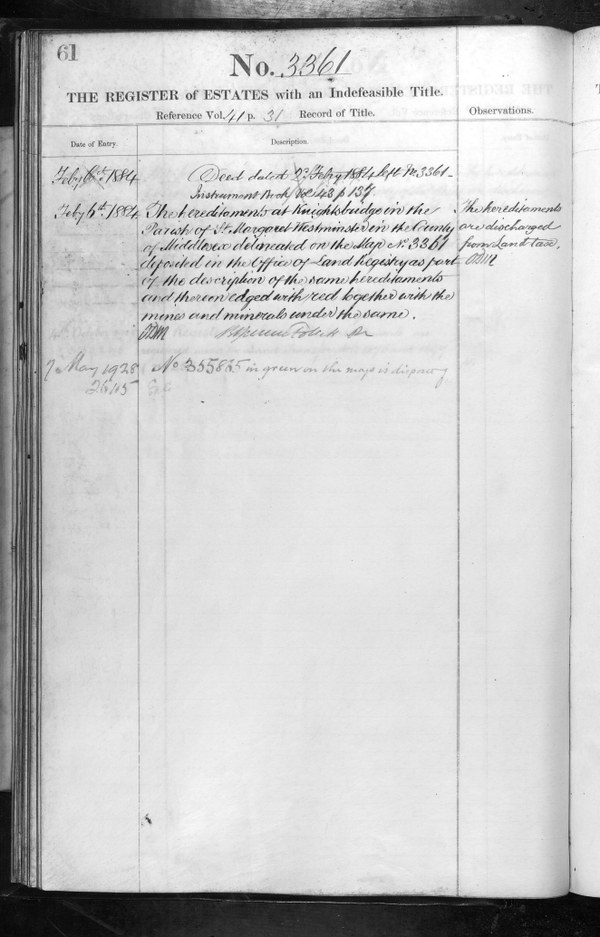 61
No. 3361
THE REGISTER of ESTATES with an Indefeasible Title.
Reference Vol. 41 p. 31 Record of Title.
Observations.
Date of Entry.
Description.
Feby 6th 1884
Deed dated 2d Feby 1884 left No. 3361
Instrument Book Vol 43 p 137
Feby 6th 1884
The hereditaments at Knightsbridge in the
Parish of St. Margaret Westminster in the County
of Middlesex delineated on the Map No. 3361
deposited in the Office of Land Registry as part
of the description of the same hereditaments
and thereon edged with red together with the
mines and minerals under the same.
The hereditaments
are discharged
from Land Tax.
7 May 1928
No 355865 in green on the map is